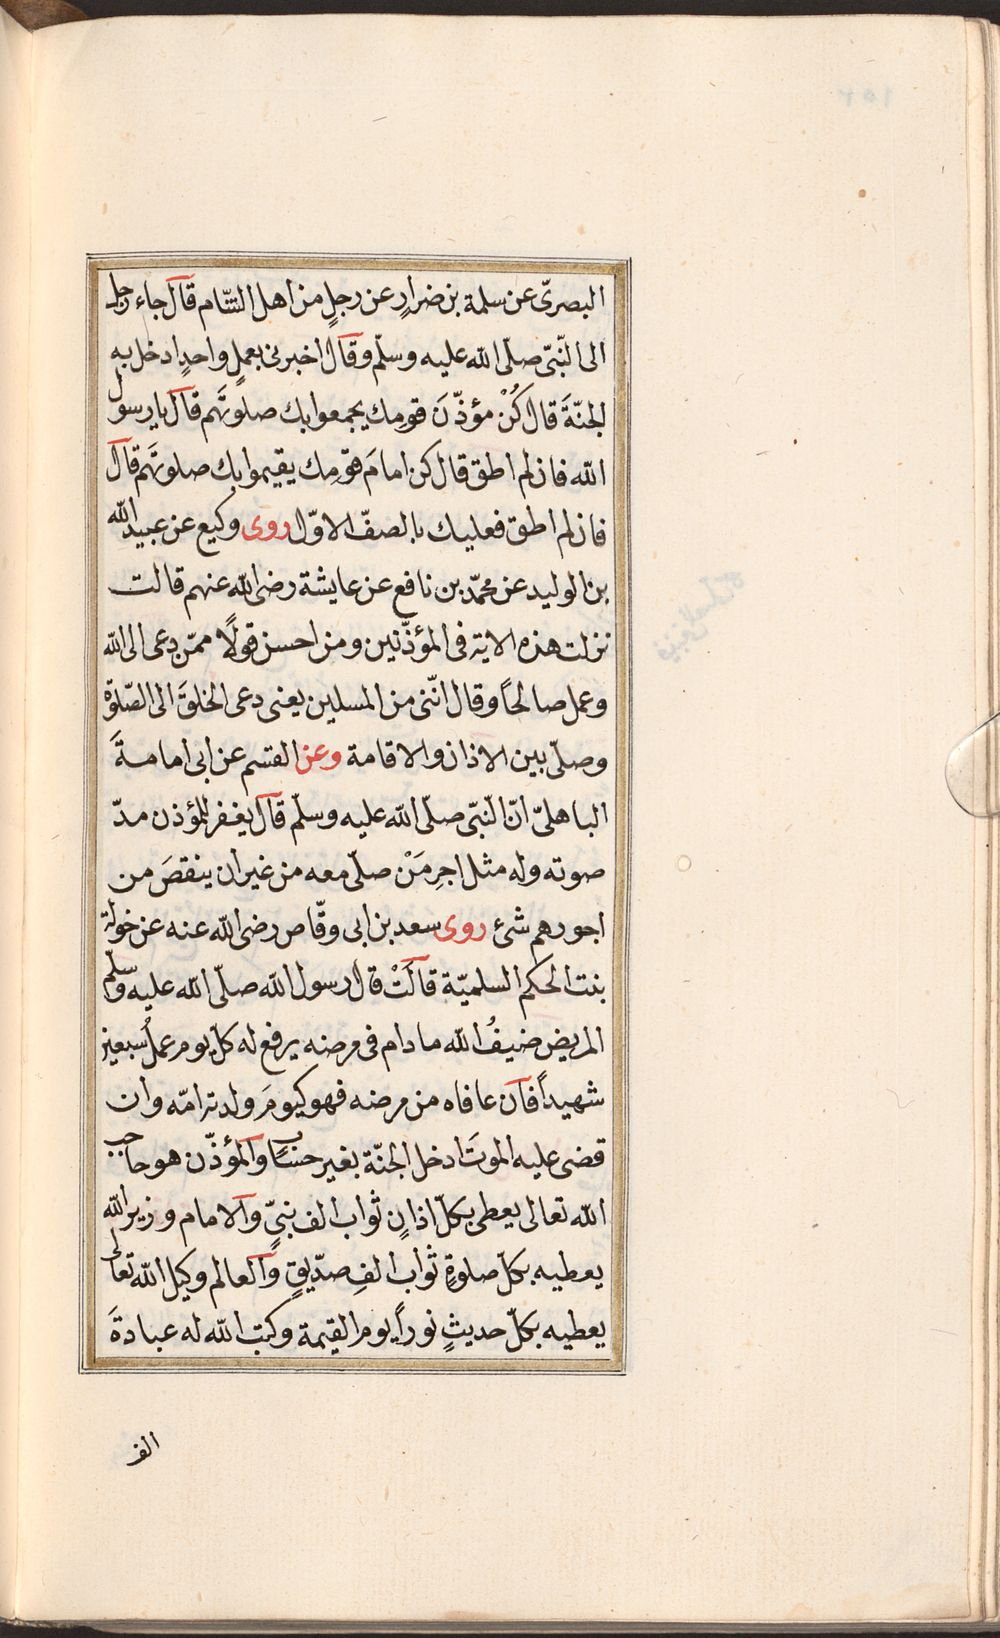 البصرىّ عن سلمة بن ضرارٍ عن رجلٍ من اهل الشّام قال جاء رجل
الى النّبىّ صلّى الله عليه وسلّم وقال اخبرنى بعملٍ واحدٍ ادخل به
الجنّةَ قال كُنْ مؤذّنَ قومك يجمعوا بك صلوتَهم قال يا رسول
الله فان لم اطق قال كن امامَ قومِك يقيموا بك صلوتَهم قال
فان لم اطق فعليك بالصفّ الاوّل روى وكيع عن عبيد الله
بن الوليد عن محمّد بن نافع عن عايشة رضى الله عنهم قالت
نزلت هذه الاية فى المؤذّنين ومن احسن قولًا ممّن دعى الى الله
وعمل صالحًا وقال انّنى من المسلمين يعنى دعى الخلقَ الى الصّلوة
وصلّى بين الاذان والاقامة وعن القسم عن ابى امامةَ
الباهلىّ انّ النّبىّ صلّى الله عليه وسلّم قال يغفر للمؤذن مدّ
صوته وله مثل اجرِ مَنْ صلّى معه من غير ان ينقصَ من
اجورهم شئ روى سعد بن ابى وقّاص رضى الله عنه عن خولة
بنت الحكم السلميّة قالَتْ قال رسول الله صلّى الله عليه وسلّم
المريض ضيفُ الله ما دام فى مرضه يرفع له كلّ يوم عملُ سبعين
شهيداً فان عافاه من مرضه فهو كيومَ ولدته امّه وان
قضى عليه الموتَ ادخل الجنّة بغير حسابٍ والمؤذّن هو حاجب
الله تعالى يعطى بكلّ اذانٍ ثواب الف نبىٍّ والامام وزير الله
يعطيه بكلّ صلوةٍ ثواب الفِ صدّيقٍ والعالم وكيل الله تعالى
يعطيه بكلّ حديثٍ نوراً يوم القيمة وكتب الله له عبادةَ
الف